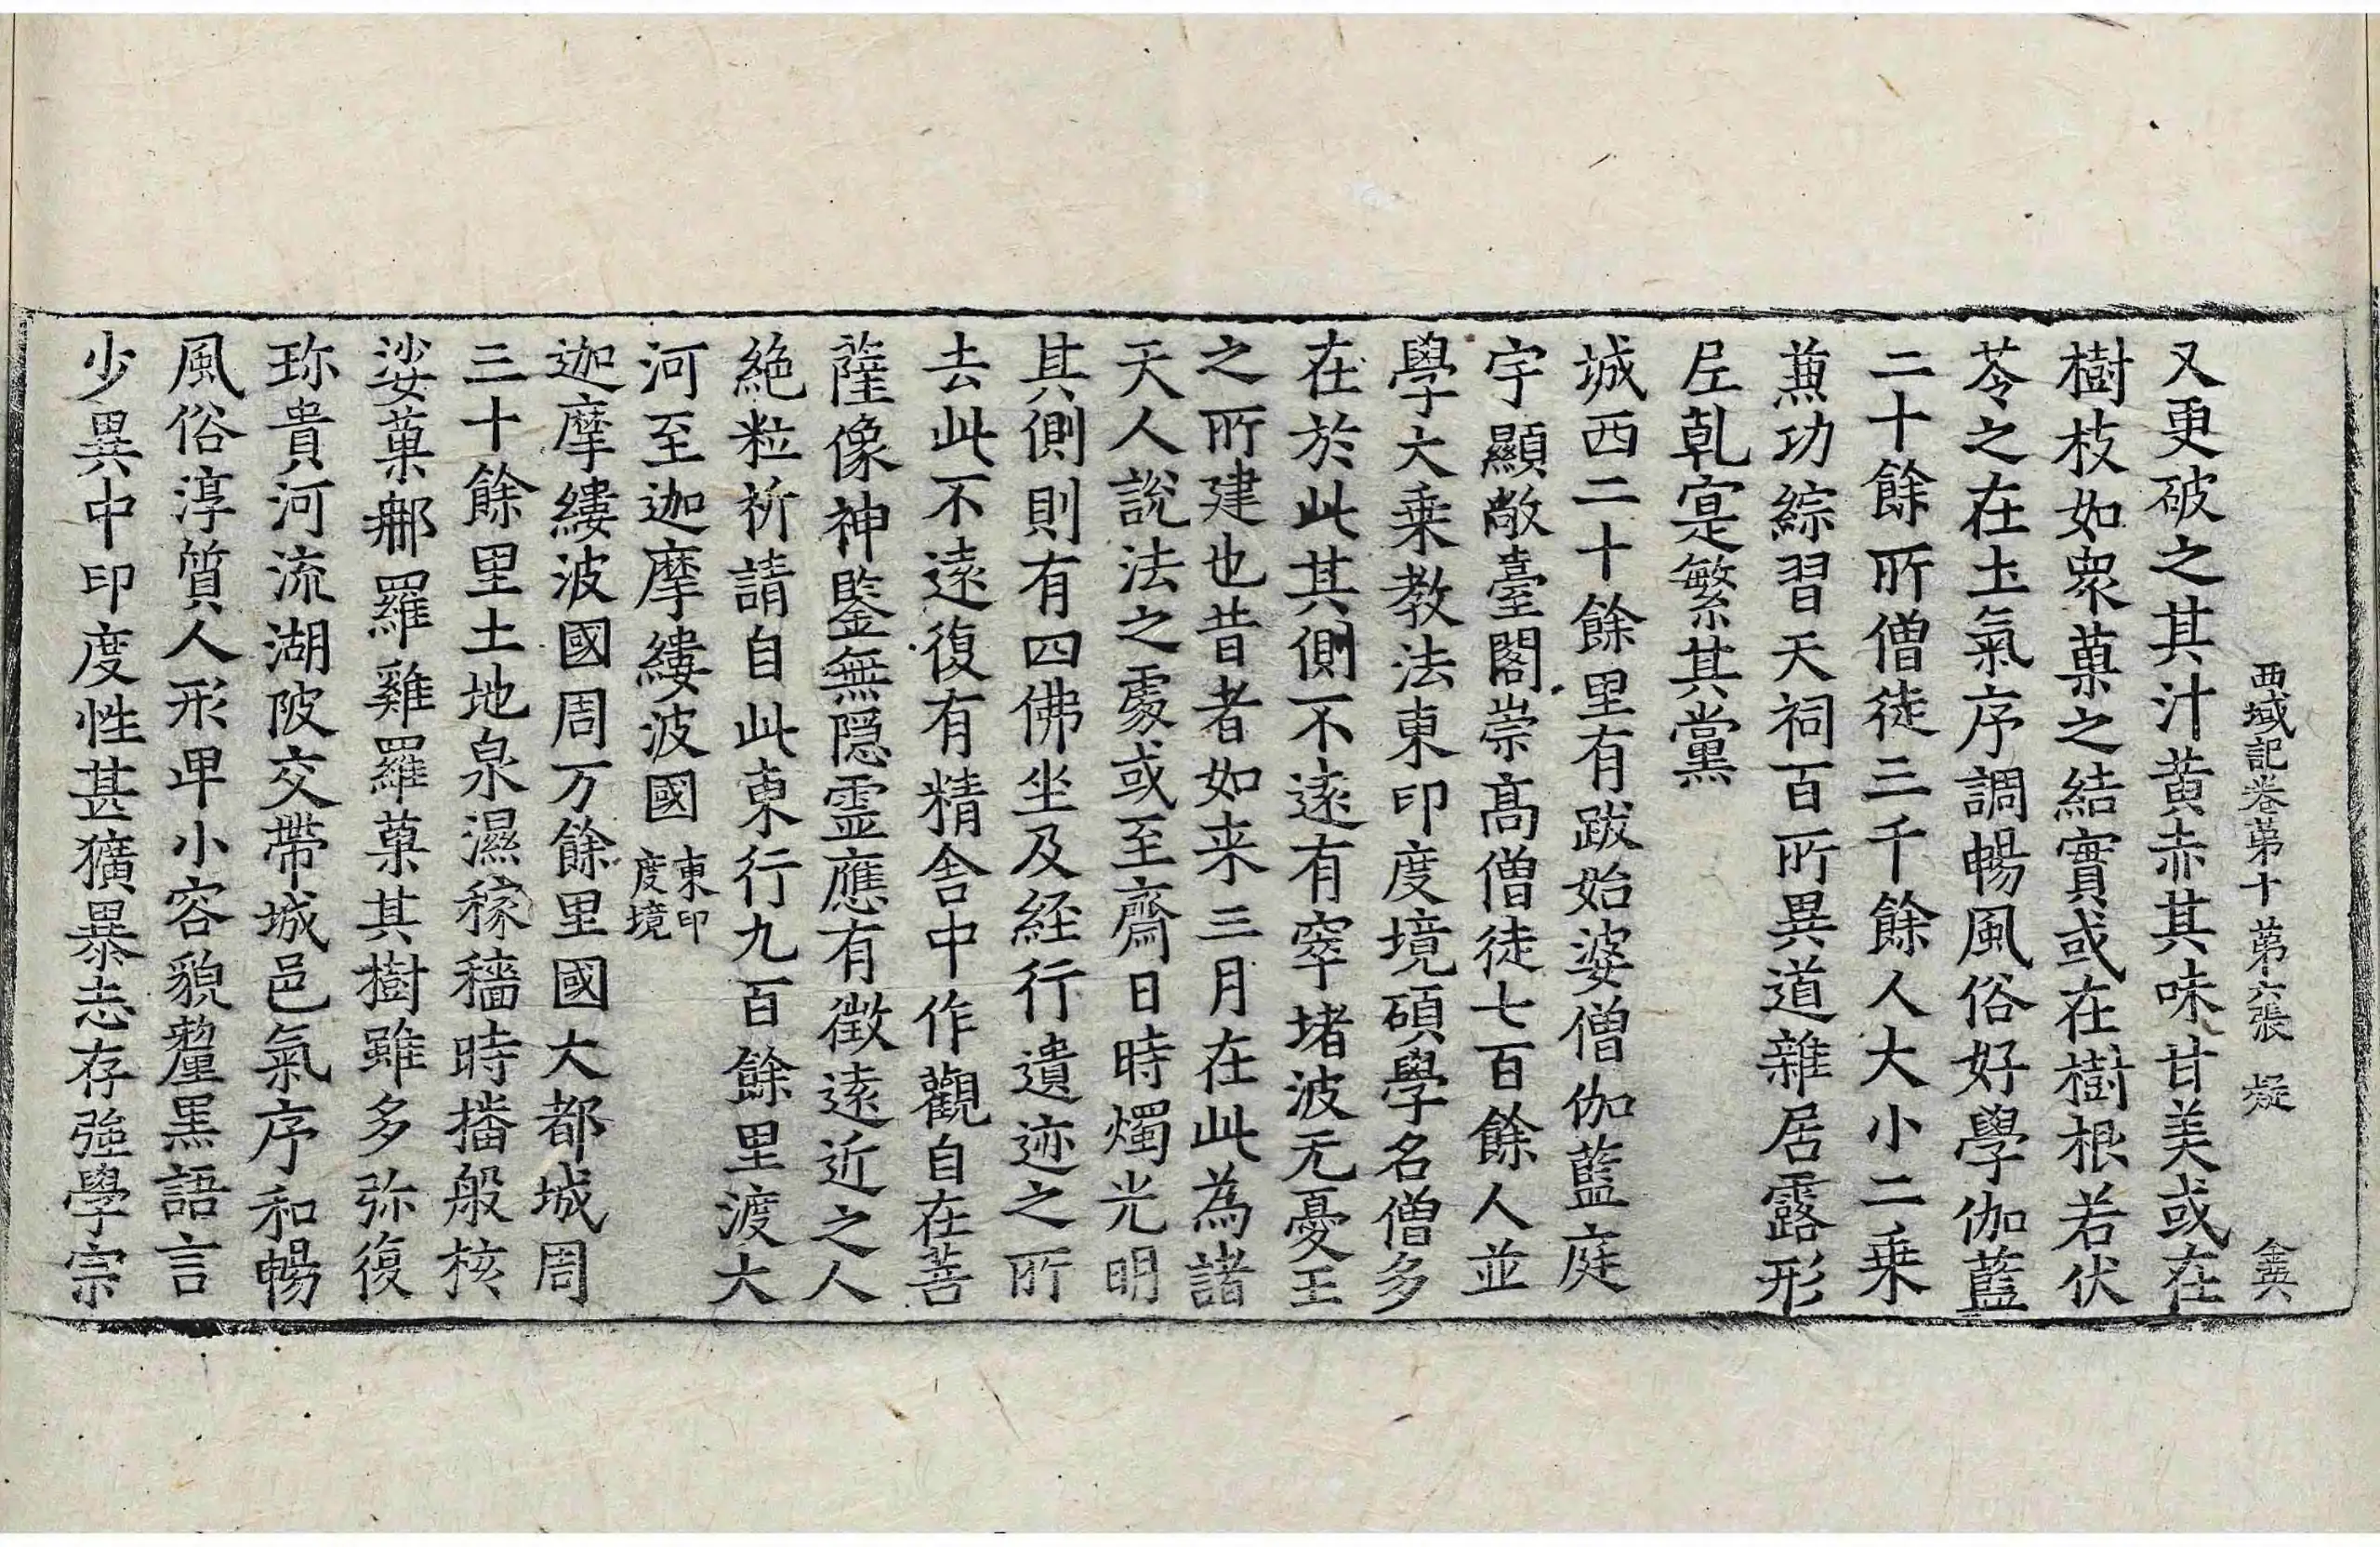 西域記卷苐十 苐六張 㝵
又更破之其汁黃赤其味甘美或在
樹枝如衆菓之結實或在樹根若伏
苓之在土氣序調暢風俗好學伽藍
二十餘所僧徒三千餘人大小二乗
兼功綜習天祠百所異道雜居露形
尼乾寔繁其黨
城西二十餘里有跋始婆僧伽藍庭
宇顯敞臺閣崇髙僧徒七百餘人並
學大乗教法東印度境碩學名僧多
在於此其側不遠有窣堵波无憂王
之所建也昔者如来三月在此為諸
天人說法之處或至齋日時燭光明
其側則有四佛坐及経行遺迹之所
去此不遠復有精舍中作觀自在菩
薩像神鑒無隠霊應有徵遠近之人
絶粒祈請自此東行九百餘里渡大
河至迦摩縷波國東印度境
迦摩縷波國周万餘里國大都城周
三十餘里土地泉濕稼穡時播般核
娑菓那羅雞羅菓其樹雖多弥復
珎貴河流湖陂交帶城邑氣序和暢
風俗淳質人形卑小容貌黧黑語言
少異中印度性甚獷暴志存强學宗